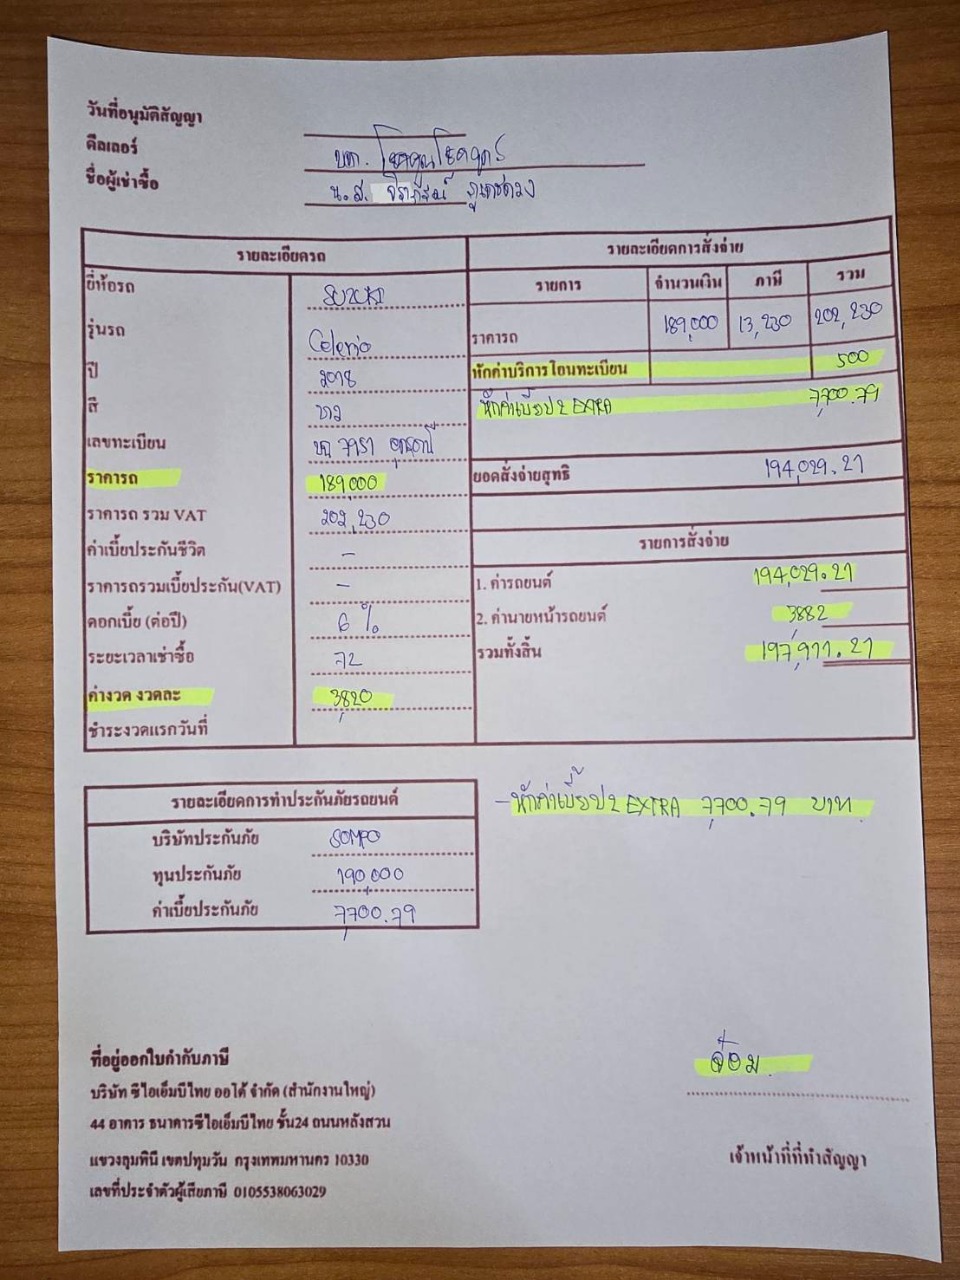 วันที่อนุมัติสัญญา
ดีลเลอร์ บจก.
ชื่อผู้เช่าซื้อ น.ส.
รายละเอียดรถ
ยี่ห้อรถ SUZUKI
รุ่นรถ Celerio
ปี 2018
สี ขาว
เลขทะเบียน 7951 อุดรธานี
ราคารถ 189,000
ราคารถ รวม VAT 202,230
ค่าเบี้ยประกันชีวิต -
ราคารถรวมเบี้ยประกัน(VAT) -
ดอกเบี้ย (ต่อปี) 6 %
ระยะเวลาเช่าซื้อ 72
ค่างวด งวดละ 3,820
ชำระงวดแรกวันที่
รายละเอียดการสั่งจ่าย
รายการ จำนวนเงิน ภาษี รวม
ราคารถ 189,000 13,230 202,230
หักค่าบริการโอนทะเบียน 500
หักค่าเบี้ยป2 EXTRA 7,700.79
ยอดสั่งจ่ายสุทธิ 194,029.21
รายการสั่งจ่าย
1. ค่ารถยนต์ 194,029.21
2. ค่านายหน้ารถยนต์ 3,882
รวมทั้งสิ้น 197,911.21
รายละเอียดการทำประกันภัยรถยนต์
บริษัทประกันภัย SOMPO
ทุนประกันภัย 190,000
ค่าเบี้ยประกันภัย 7,700.79
- หักค่าเบี้ยป2 EXTRA 7,700.79 บาท
ที่อยู่ออกใบกำกับภาษี
บริษัท ซีไอเอ็มบีไทย ออโต้ จำกัด (สำนักงานใหญ่)
44 อาคาร ธนาคารซีไอเอ็มบีไทย ชั้น24 ถนนหลังสวน
แขวงลุมพินี เขตปทุมวัน กรุงเทพมหานคร 10330
เลขที่ประจำตัวผู้เสียภาษี 0105538063029
จ๋อม
เจ้าหน้าที่ที่ทำสัญญา